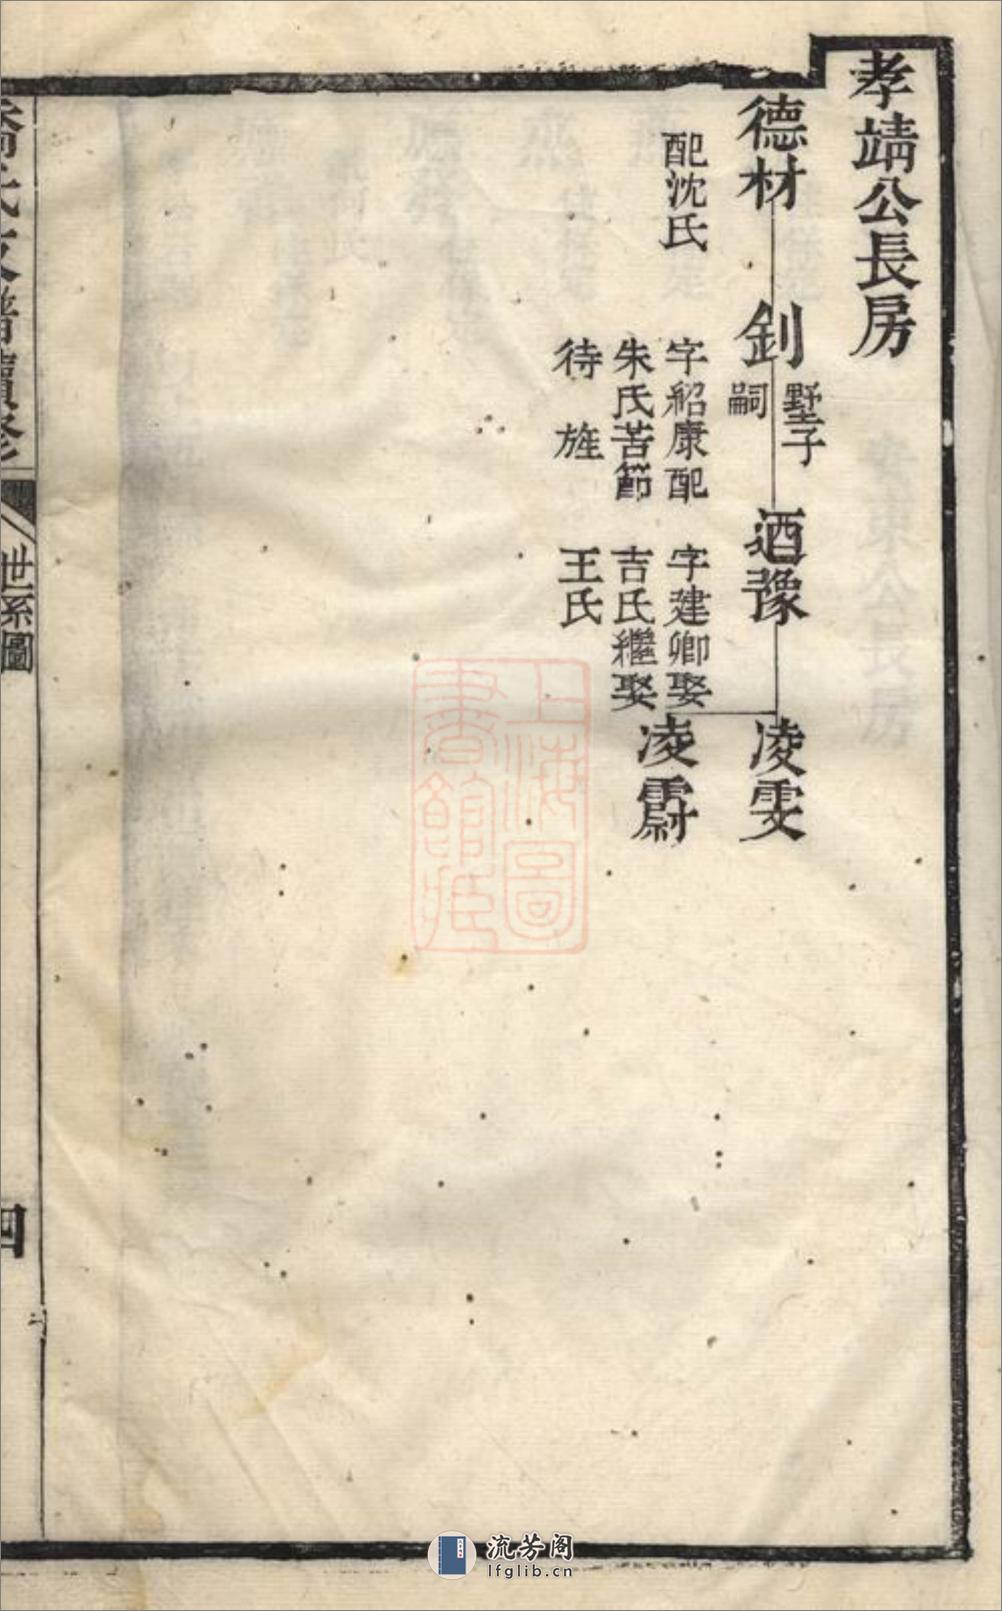 孝靖公長房
德材
配沈氏
釗
墅子
嗣
字紹康配
朱氏苦節
待旌
迺豫
字建卿娶
吉氏繼娶
王氏
凌雯
凌霨
氏支譜續修
世系圖
四
上海圖
書館藏
流芳阁
lfglib.cn